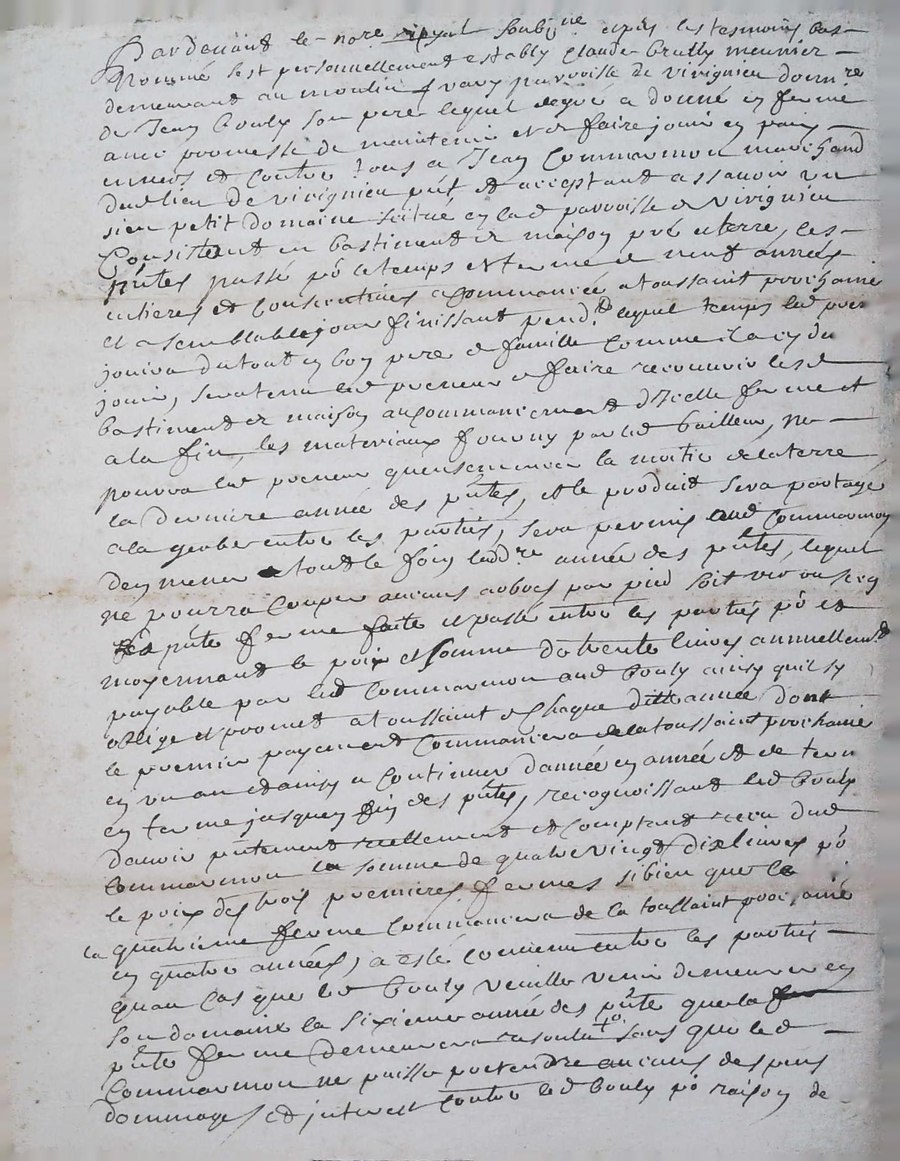 Pardevant le nore royal soubne apres les tesmoins bas
Nommé sest personnellement estably Claude Brully meunier
demeurant au moulin parroisse de Virignieu
de Jean Bouly son pere lequel de gré a donné en ferme
avec promesse de maintenir et de faire jouir en paix
envers et contre tous a Jean Commarmon marchand
dud lieu de Virignieu pnt et acceptant assavoir un
sien petit domaine scitué en lad parroisse de Virignieu
Consistent en bastiment de maison pré et terre, les
pntes passé po le temps et terme de neuf années
entieres et consecutives a commancée a toussaint prochaine
et a semblable jour finissant pend.t lequel temps led prer
jouira du tout en bon pere de famille comme il a en du
jouir, sera tenu led preneur de faire recouvrir lesd
bastiment de maison au commancement d'icelle ferme et
a la fin, les materiaux fourny par led bailleur, ne
pourra led preneur quensemencer la moitié de la terre
la derniere année des pntes, et le produit sera partagé
a la gerbe entre les parties, sera permis aud Commarmon
den mener tout le foin lad dre année des pntes, lequel
ne pourra couper aucuns arbres par pied soit vif ou secq
pnte ferme faite et passé entre les parties po et
moyennant le prix et somme de trente livres annuellemt
payable par led Commarmon aud Bouly ainsy quil sy
oblige et promet a toussaint de chaque ditte année dont
le premier payement commancera de la toussaint prochaine
en un an et ainsy a continuer d'année en année et de terme
en terme jusquen fin des pntes, recognoissant led Bouly
davoir pntement reellement et comptant receu dud
Commarmon la somme de quatre vingt dix livres po
le prix des trois premieres fermes si bien que la
la quatrieme ferme commancera de la toussaint prochaine
en quatre années, a esté convenu entre les parties
quau cas que led Bouly veuille venir demeurer en
son domaine la sixieme année des pnte que la
pnte ferme demeurera resoulu sans que led
Commarmon ne puisse pretendre aucuns despens
dommages et interest contre led Bouly po raison de